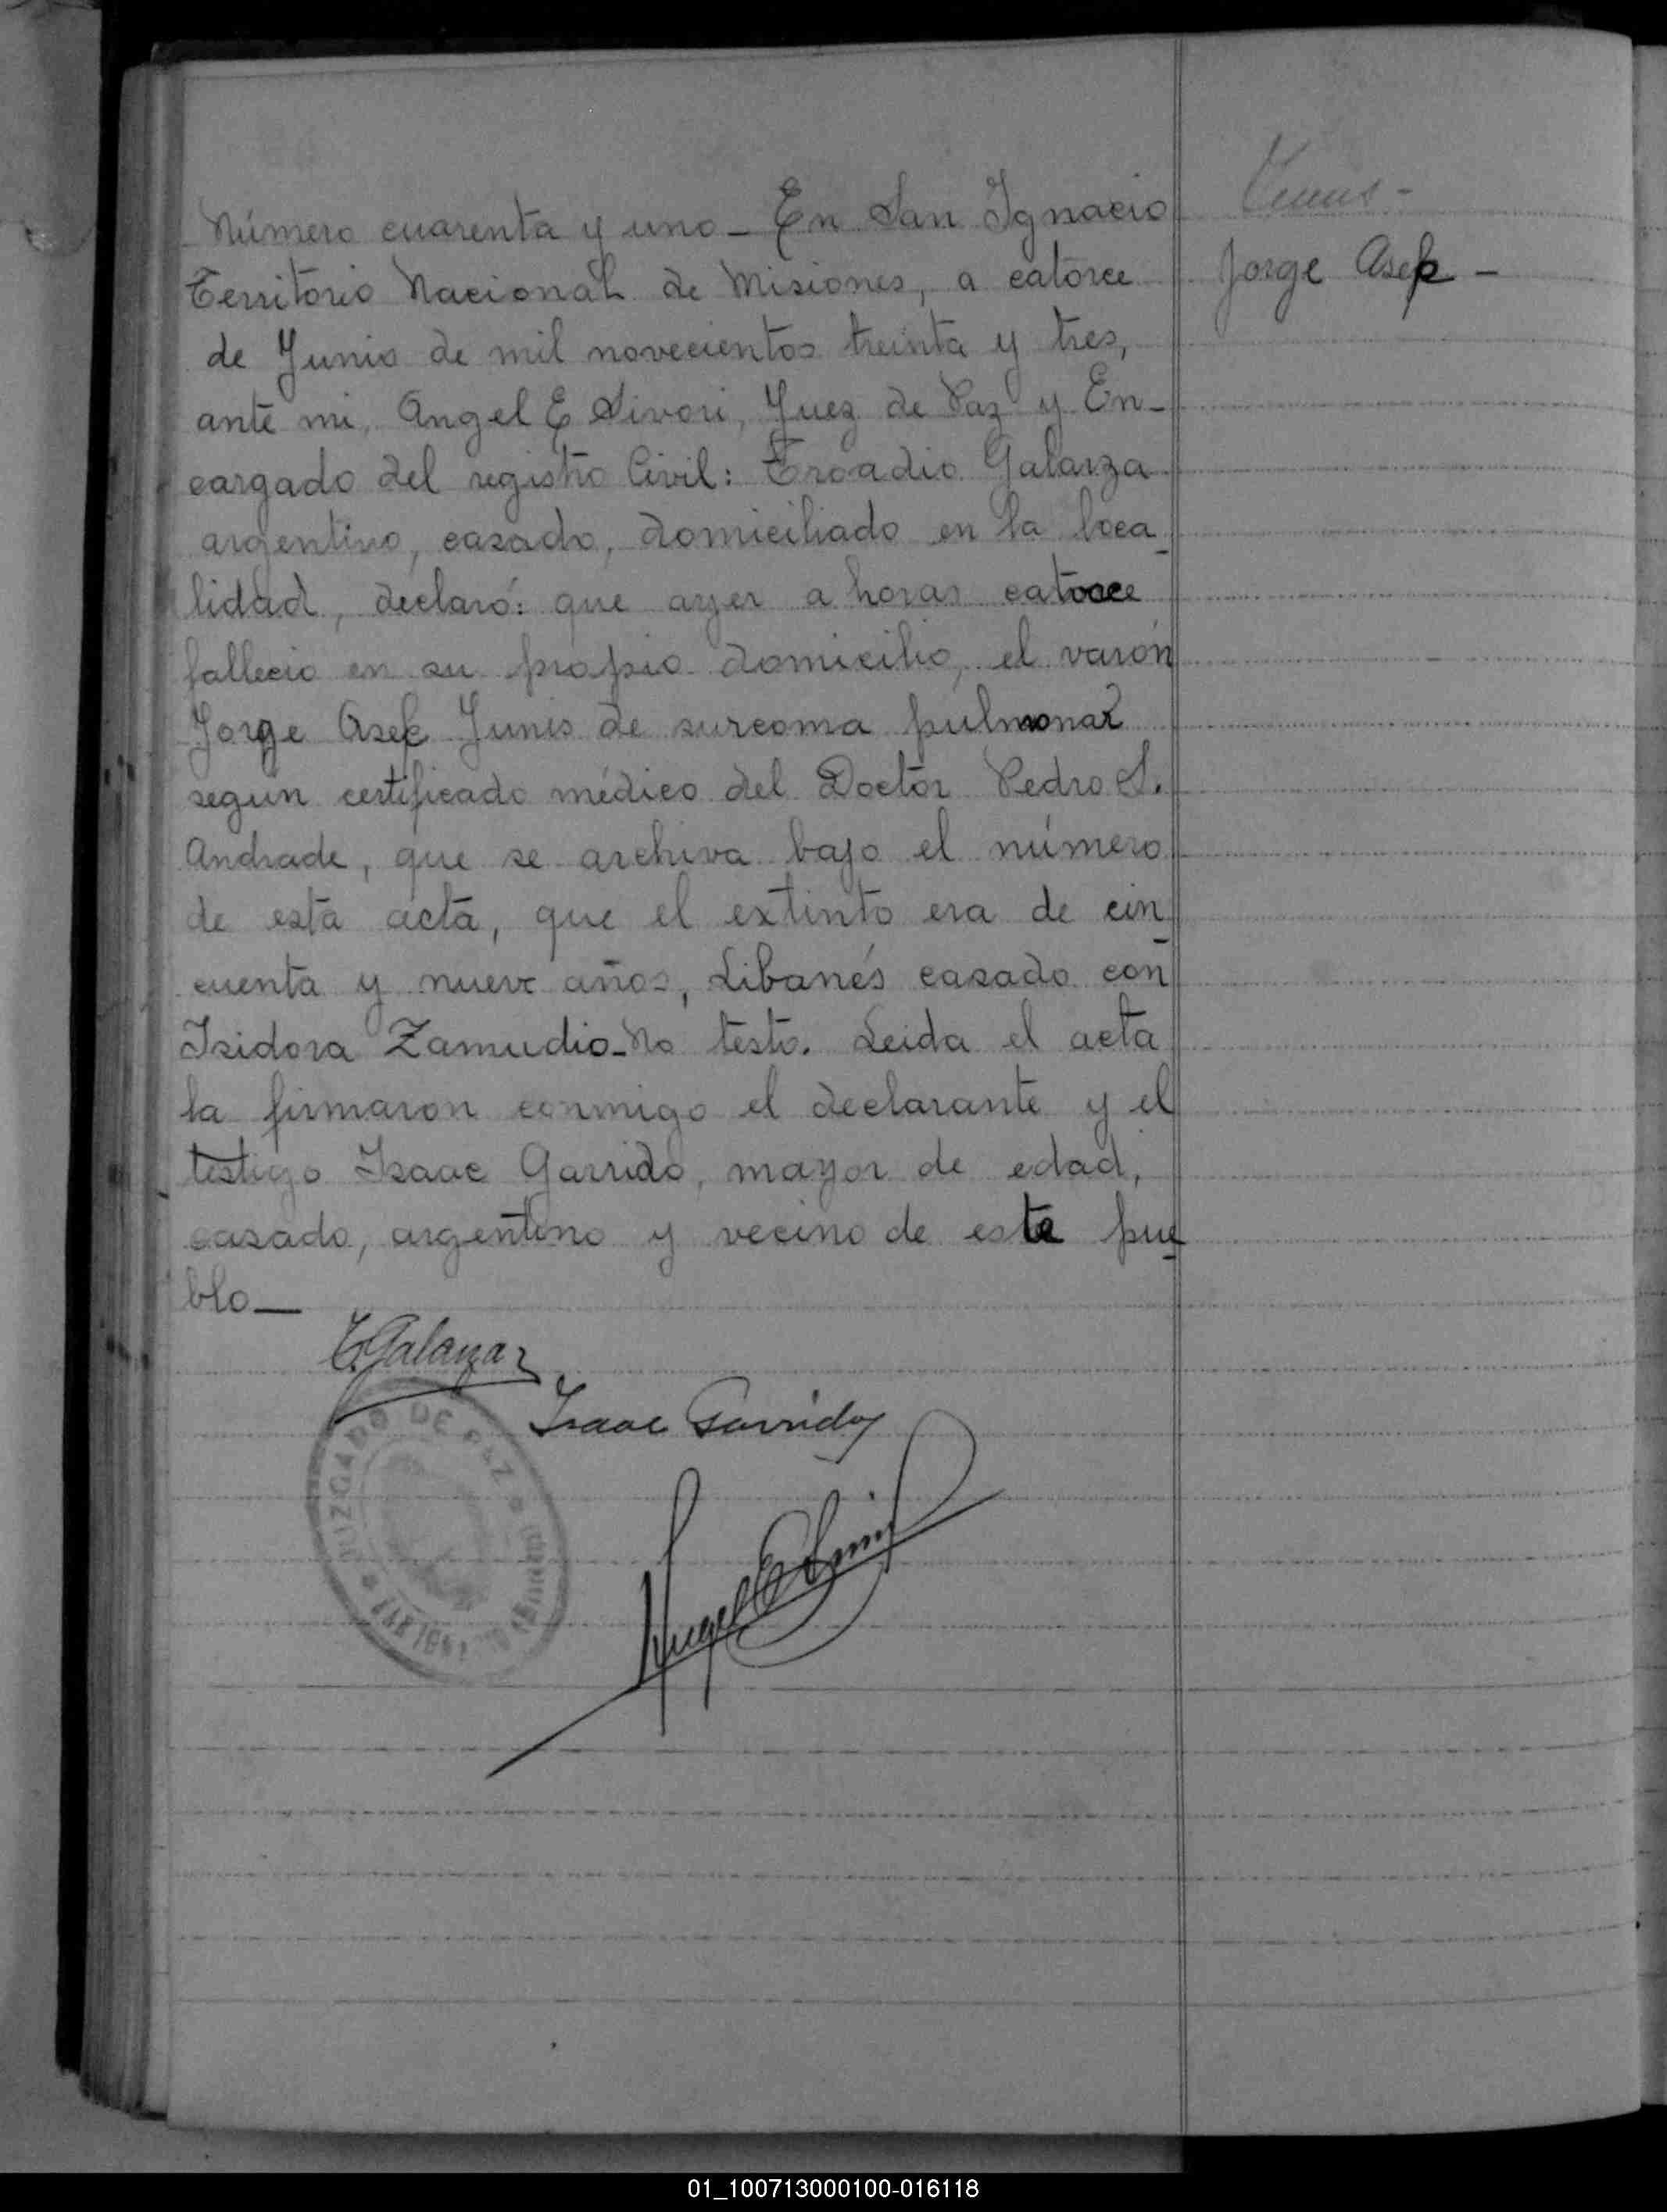 Número cuarenta y uno - En San Ignacio
Territorio Nacional de Misiones, a catorce
de Junio de mil novecientos treinta y tres,
ante mi, Angel E Sivori, Juez de Paz y En-
cargado del registro Civil: Troadio Galarza
argentino, casado, domiciliado en la loca-
lidad, declaró: que ayer a horas catorce
fallecio en su propio domicilio, el varón
Jorge Asef Junis de surcoma pulmonar
según certificado médico del Doctor Pedro S.
Andrade, que se archiva bajo el número
de esta acta, que el extinto era de cin-
cuenta y nueve años, Libanés casado con
Isidora Zamudio - No testo. Leida el acta
la firmaron conmigo el declarante y el
testigo Isaac Garrido, mayor de edad,
casado, argentino y vecino de este pue-
blo —
Jorge Asef -
T. Galarza
Isaac Garrido
JUZGADO DE PAZ
Angel E Sivori
01_100713000100-016118